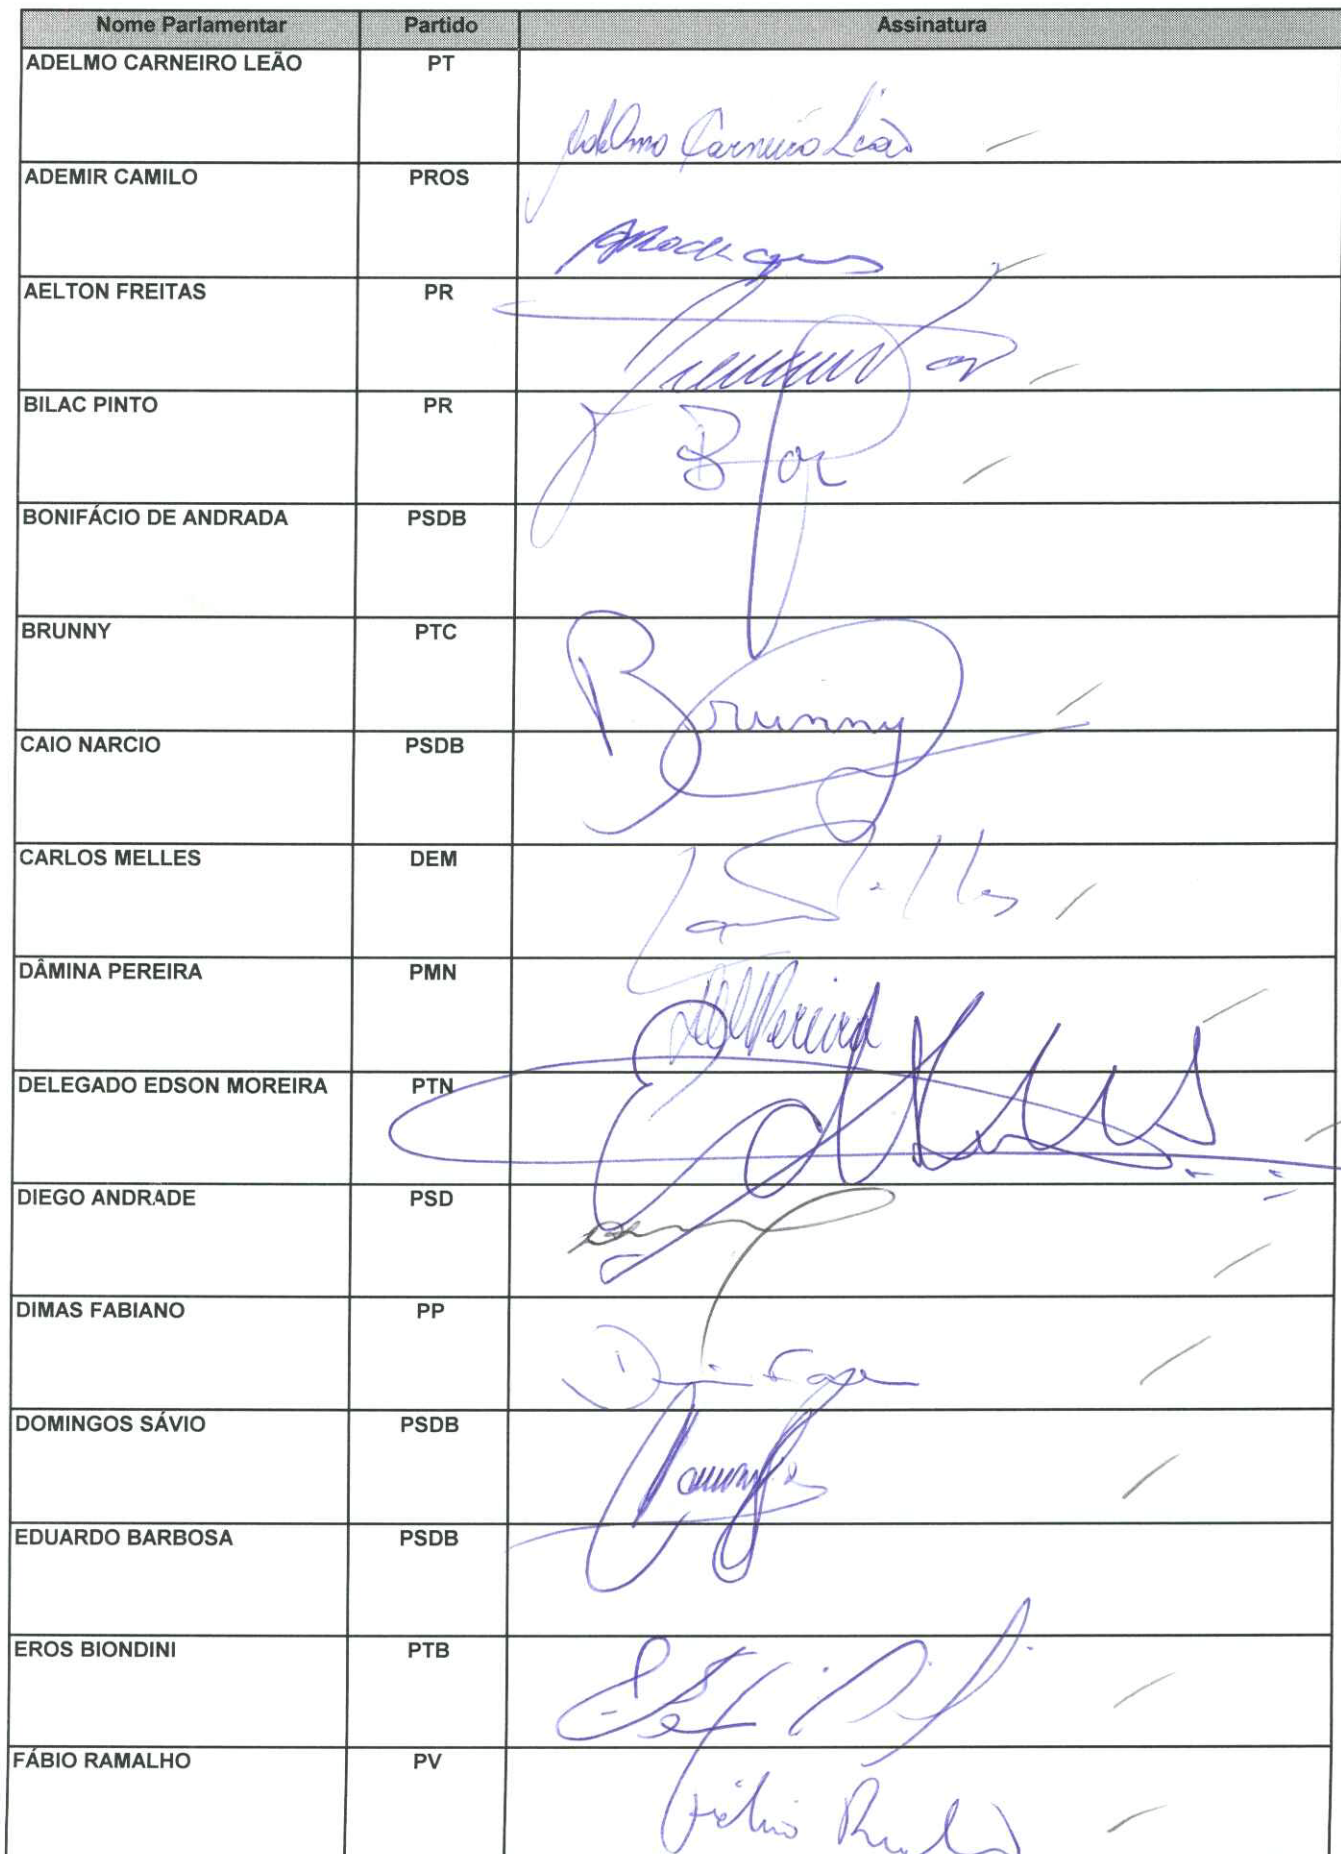 Nome Parlamentar Partido Assinatura
ADELMO CARNEIRO LEÃO PT
Adelmo Carneiro Leão
ADEMIR CAMILO PROS
AELTON FREITAS PR
BILAC PINTO PR
BONIFÁCIO DE ANDRADA PSDB
BRUNNY PTC
Brunny
CAIO NARCIO PSDB
CARLOS MELLES DEM
DÂMINA PEREIRA PMN
Pereira
DELEGADO EDSON MOREIRA PTN
DIEGO ANDRADE PSD
DIMAS FABIANO PP
DOMINGOS SÁVIO PSDB
EDUARDO BARBOSA PSDB
EROS BIONDINI PTB
FÁBIO RAMALHO PV
Fábio Ramalho